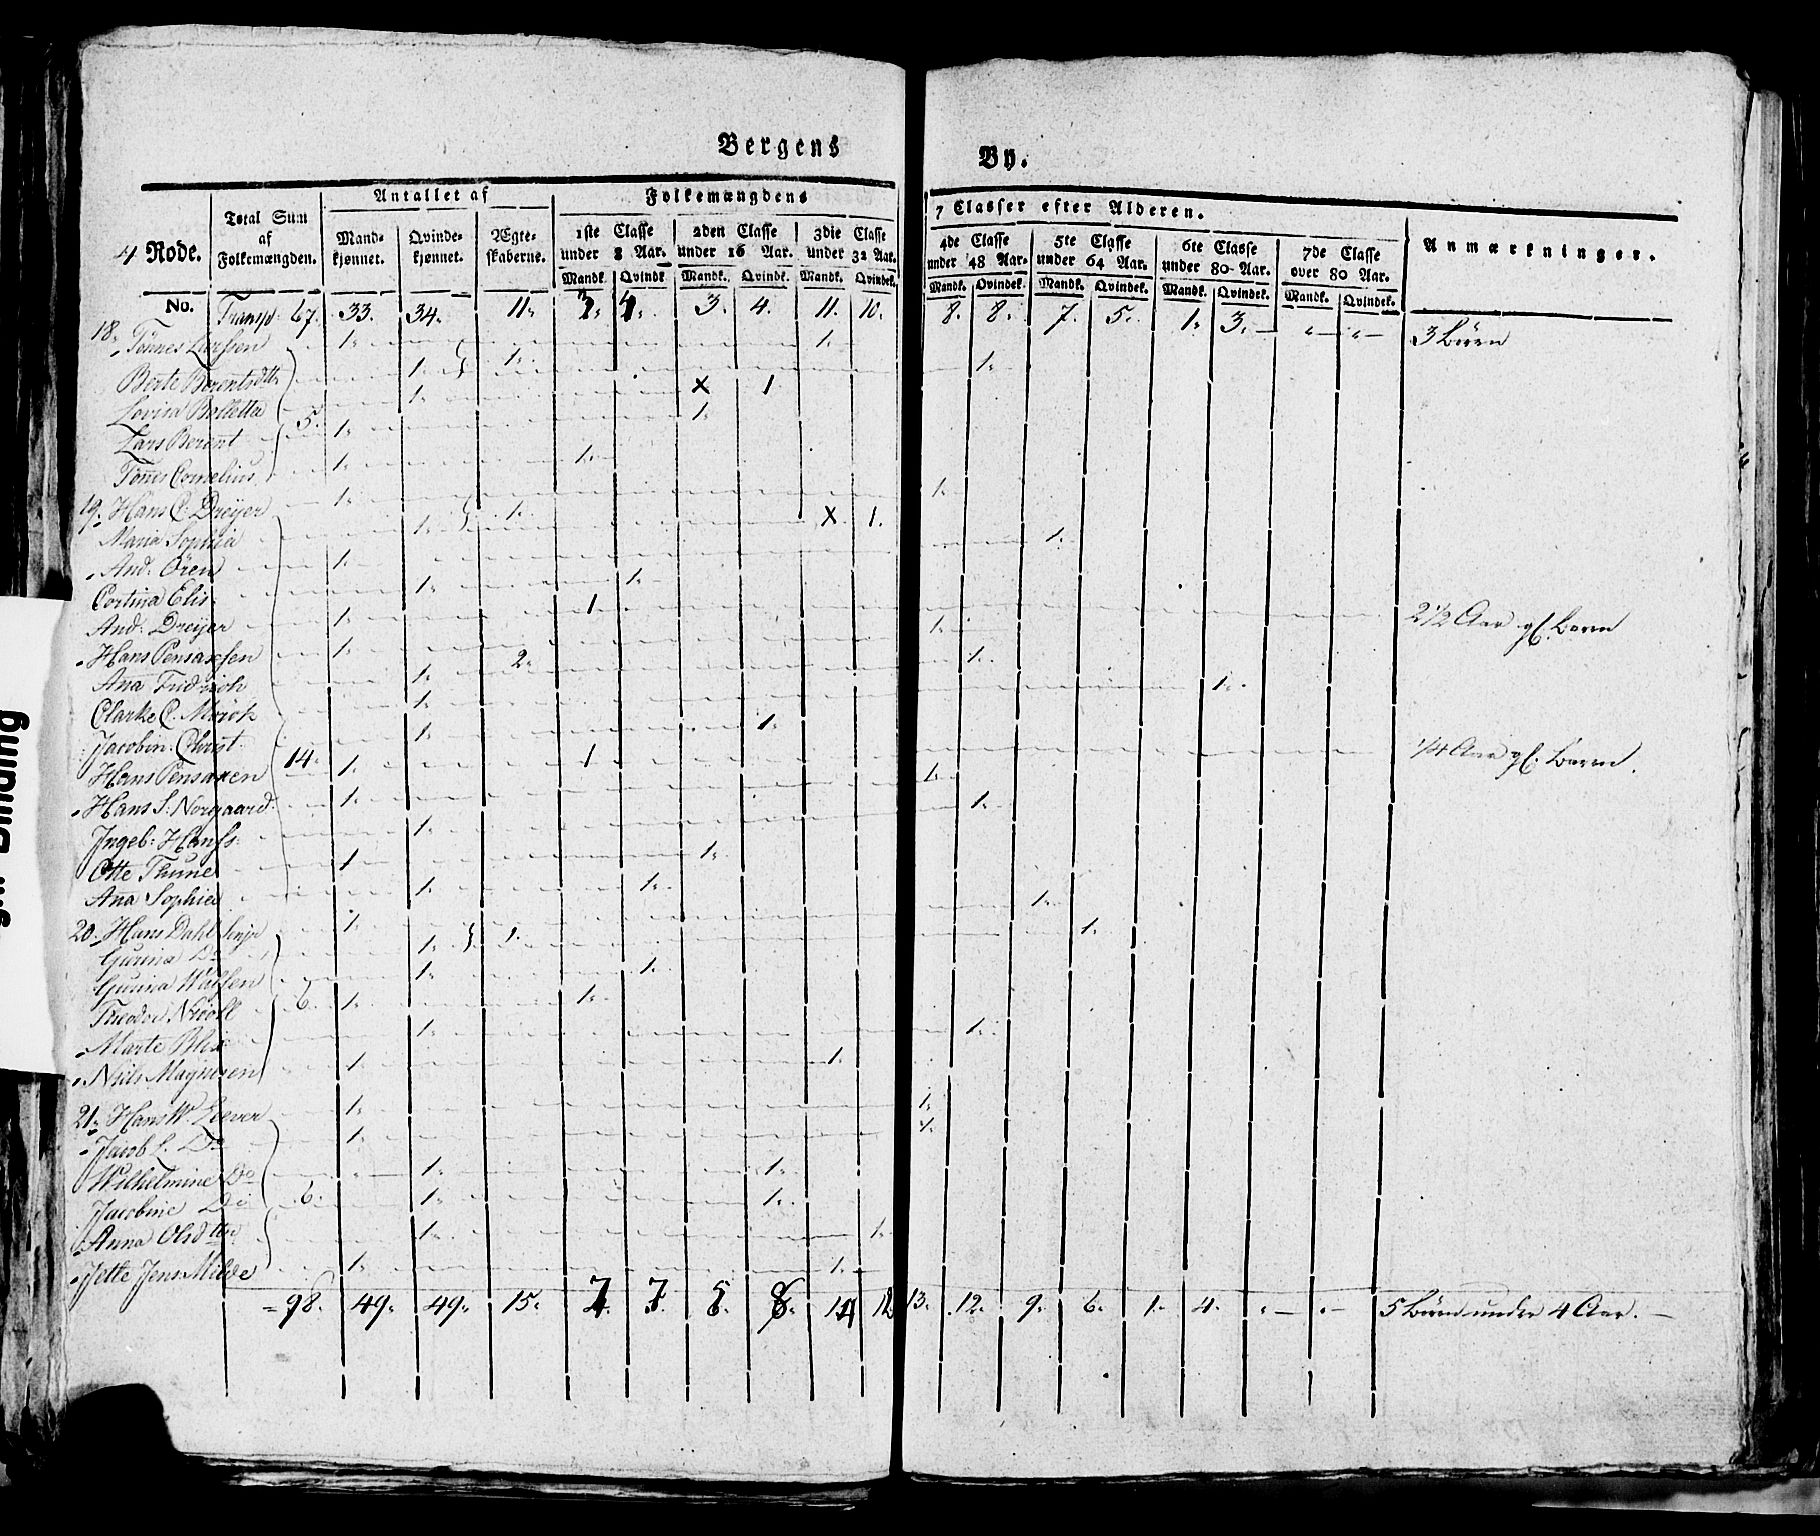 Bergens By.
4 Rode. Total Sum af Folkemængden. Antallet af Folkemængdens 7 Classer efter Alderen. Anmærkninger.
Mandkjønnet. Qvindekjønnet. Ægteskaberne. 1ste Classe under 8 Aar. 2den Classe under 16 Aar. 3die Classe under 32 Aar. 4de Classe under 48 Aar. 5te Classe under 64 Aar. 6te Classe under 80 Aar. 7de Classe over 80 Aar.
Mandk. Qvindek. Mandk. Qvindek. Mandk. Qvindek. Mandk. Qvindek. Mandk. Qvindek. Mandk. Qvindek. Mandk. Qvindek.
No. Transp. 67. 33. 34. 11. 3. 4. 3. 4. 11. 10. 8. 8. 7. 5. 1. 3. „ „ 3 Børn
18. Tönnes Larssen 1. 1.
Berte Berentsdttr 1. } 1. 1.
Lovisa Bolletta 1. X 1
Lars Berent 5. 1. 1.
Tönes Cornelius 1. 1.
19. Hans C. Dreyer 1. 1.
Maria Sophia 1. } 1. X 1.
And: Ören 1. 1.
Cortina Elis: 1. 1.
And: Dreyer 1. 1 2 1/2 Aar gl. Barn
Hans Pensaxsen 1. 1.
Ana Fridrich 1. 2. 1.
Clarke C. Mrick 1. 1.
Jacobin: Christ: 1. 1.
Hans Pensaxen 14. 1. 1 1/4 Aar gl. Barn.
Hans S. Norgaard 1. 1.
Ingeb: Hanss: 1. 1.
Otte Thune 1 1.
Ana Sophia 1. 1.
20. Hans Dahl Senjr 1. 1.
Gurina Do 1. } 1. 1.
Gurina Walsen 1. 1.
Theodor Nicoll 6. 1. 1.
Marte Blix 1. 1.
Niels Magnesen 1. 1.
21. Hans W. Liever 1. 1.
Jacob L. Do 1. 1.
Wilhelmine Do 1. 1.
Jacobine Do 6. 1. 1.
Anna Olsdtter 1. 1.
Jette Jens Milde 1. 1.
= 98. 49. 49. 15. 7 7 5 6 14 12 13. 12. 9. 6. 1. 4. „ „ 5 Börn under 4 Aar.